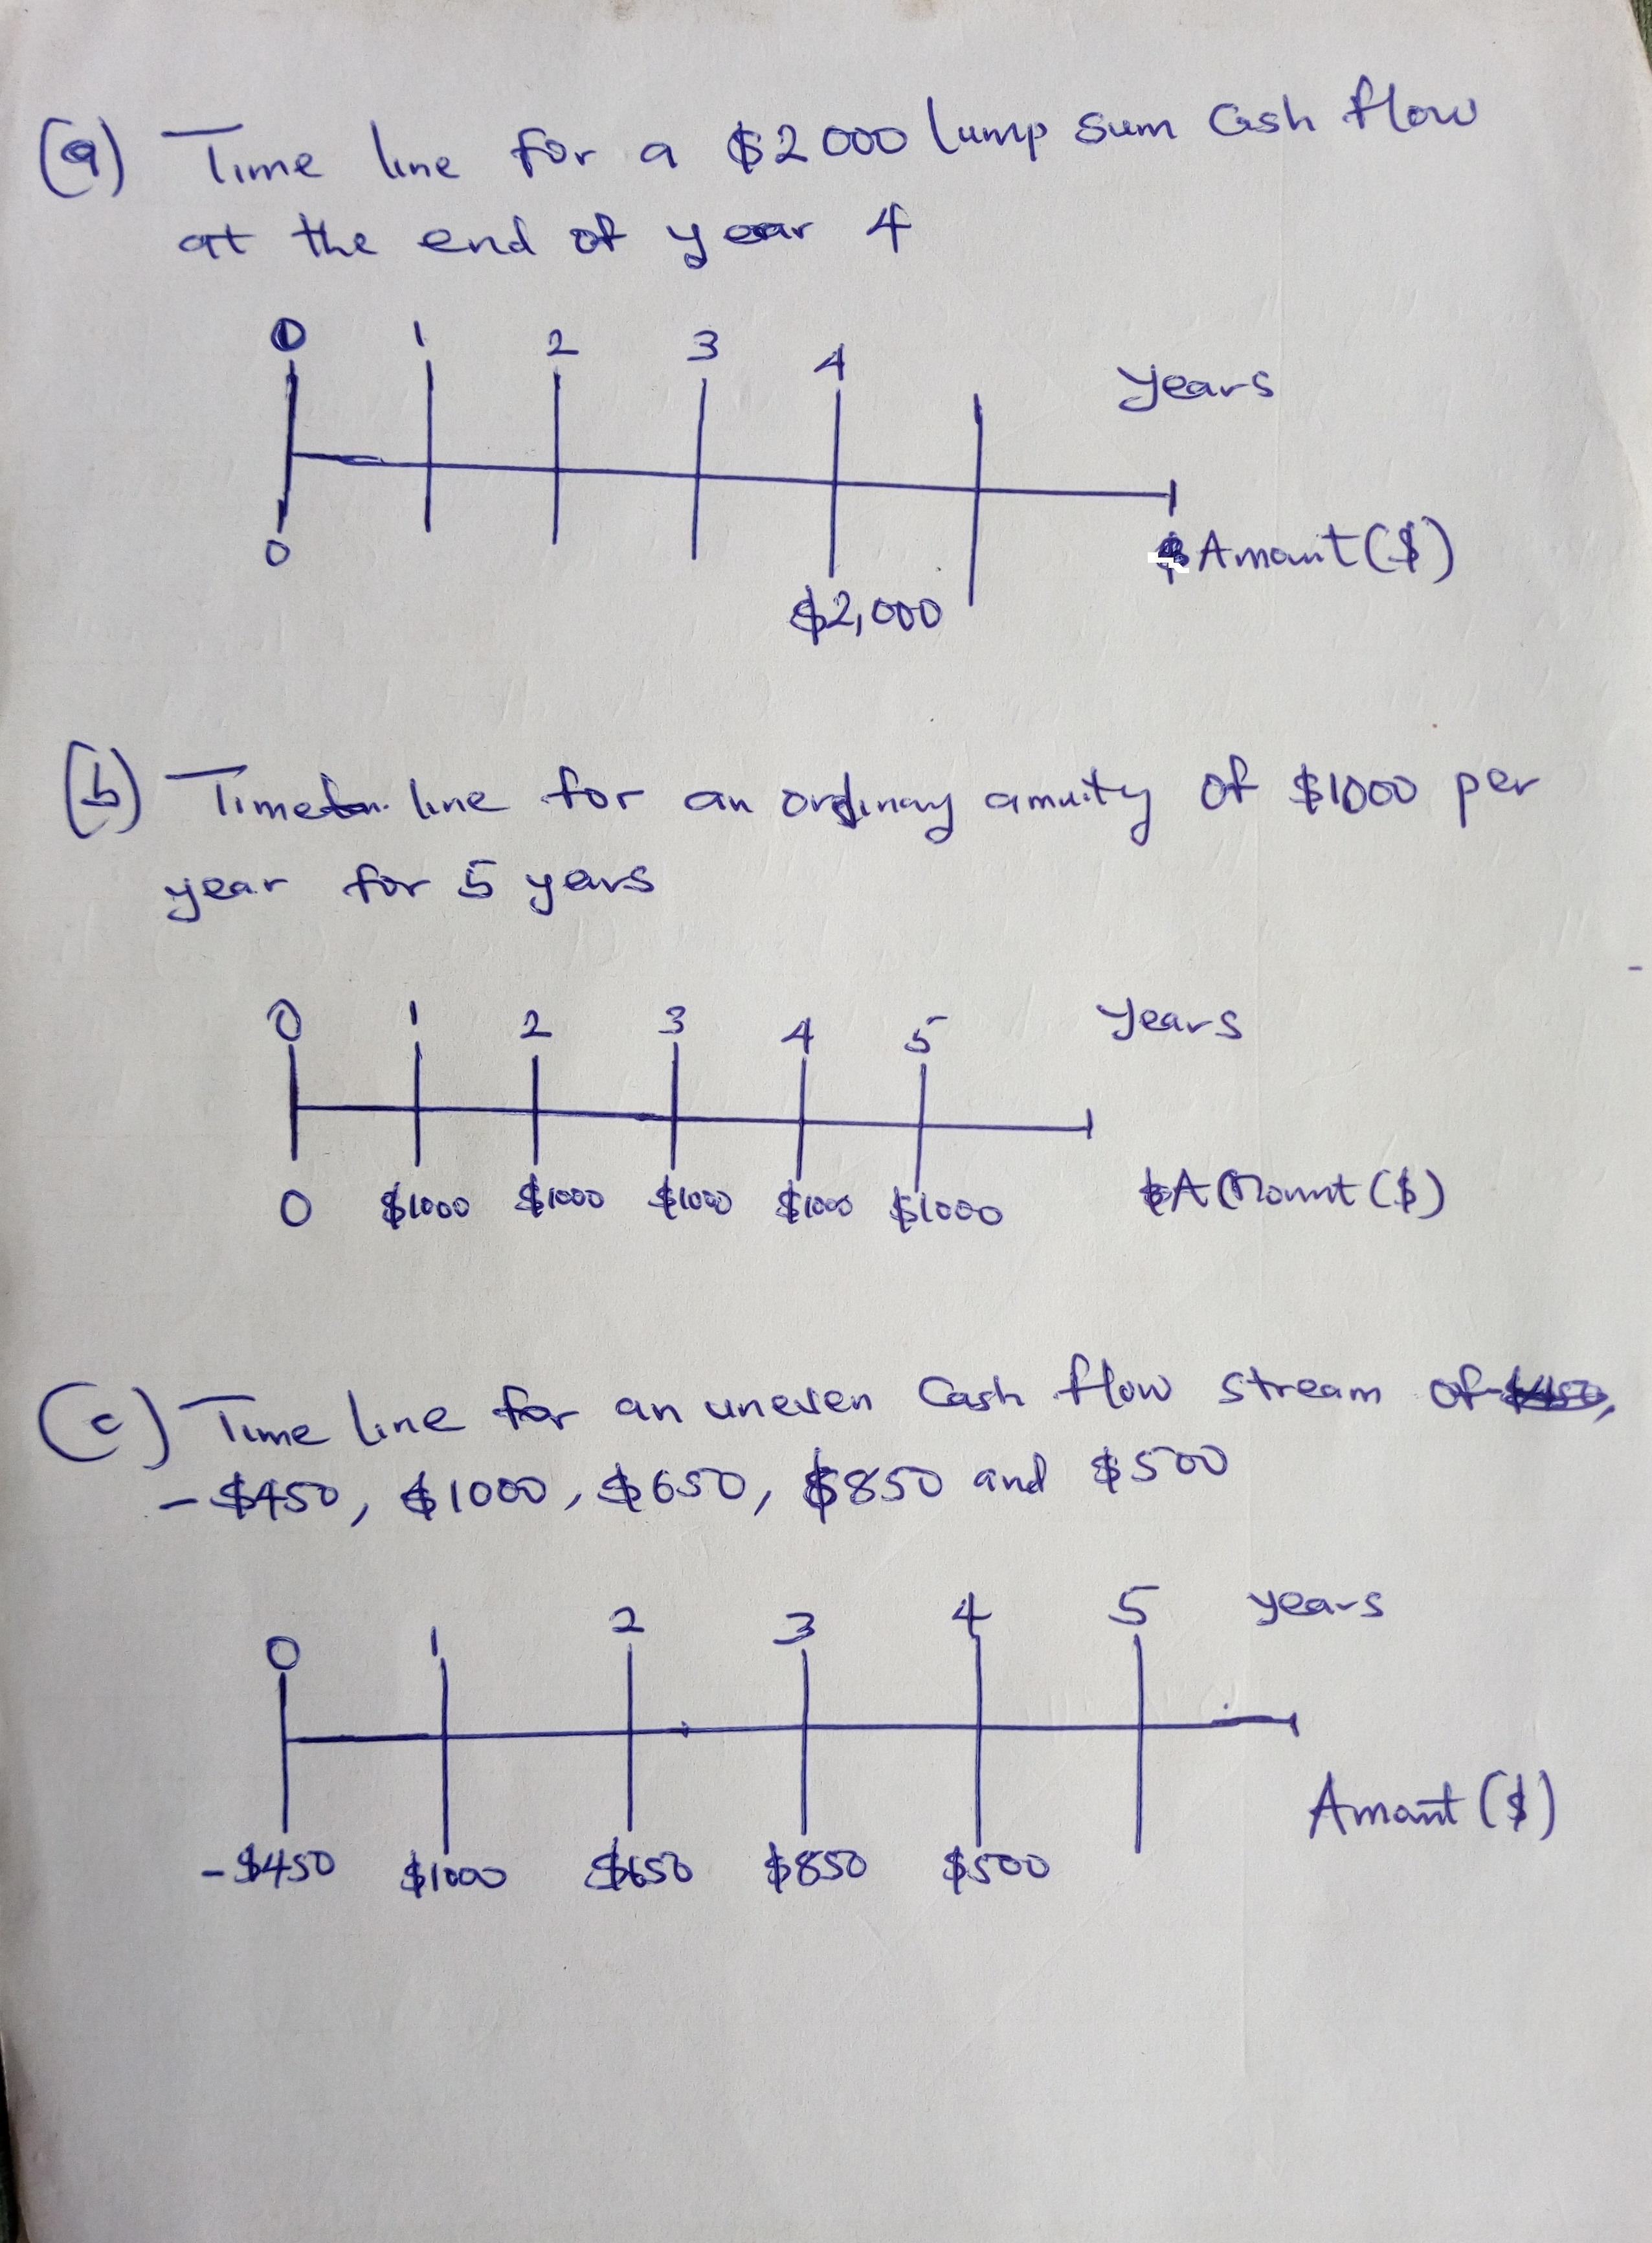 (a) Time line for a $2000 lump sum Cash flow
at the end of year 4
0 1 2 3 4 years
0 $2,000 Amount ($)
(b) Time line for an ordinary annuity of $1000 per
year for 5 years
0 1 2 3 4 5 Years
0 $1000 $1000 $1000 $1000 $1000 Amount ($)
(c) Time line for an uneven Cash flow stream of
-$450, $1000, $650, $850 and $500
0 1 2 3 4 5 years
-$450 $1000 $650 $850 $500 Amount ($)